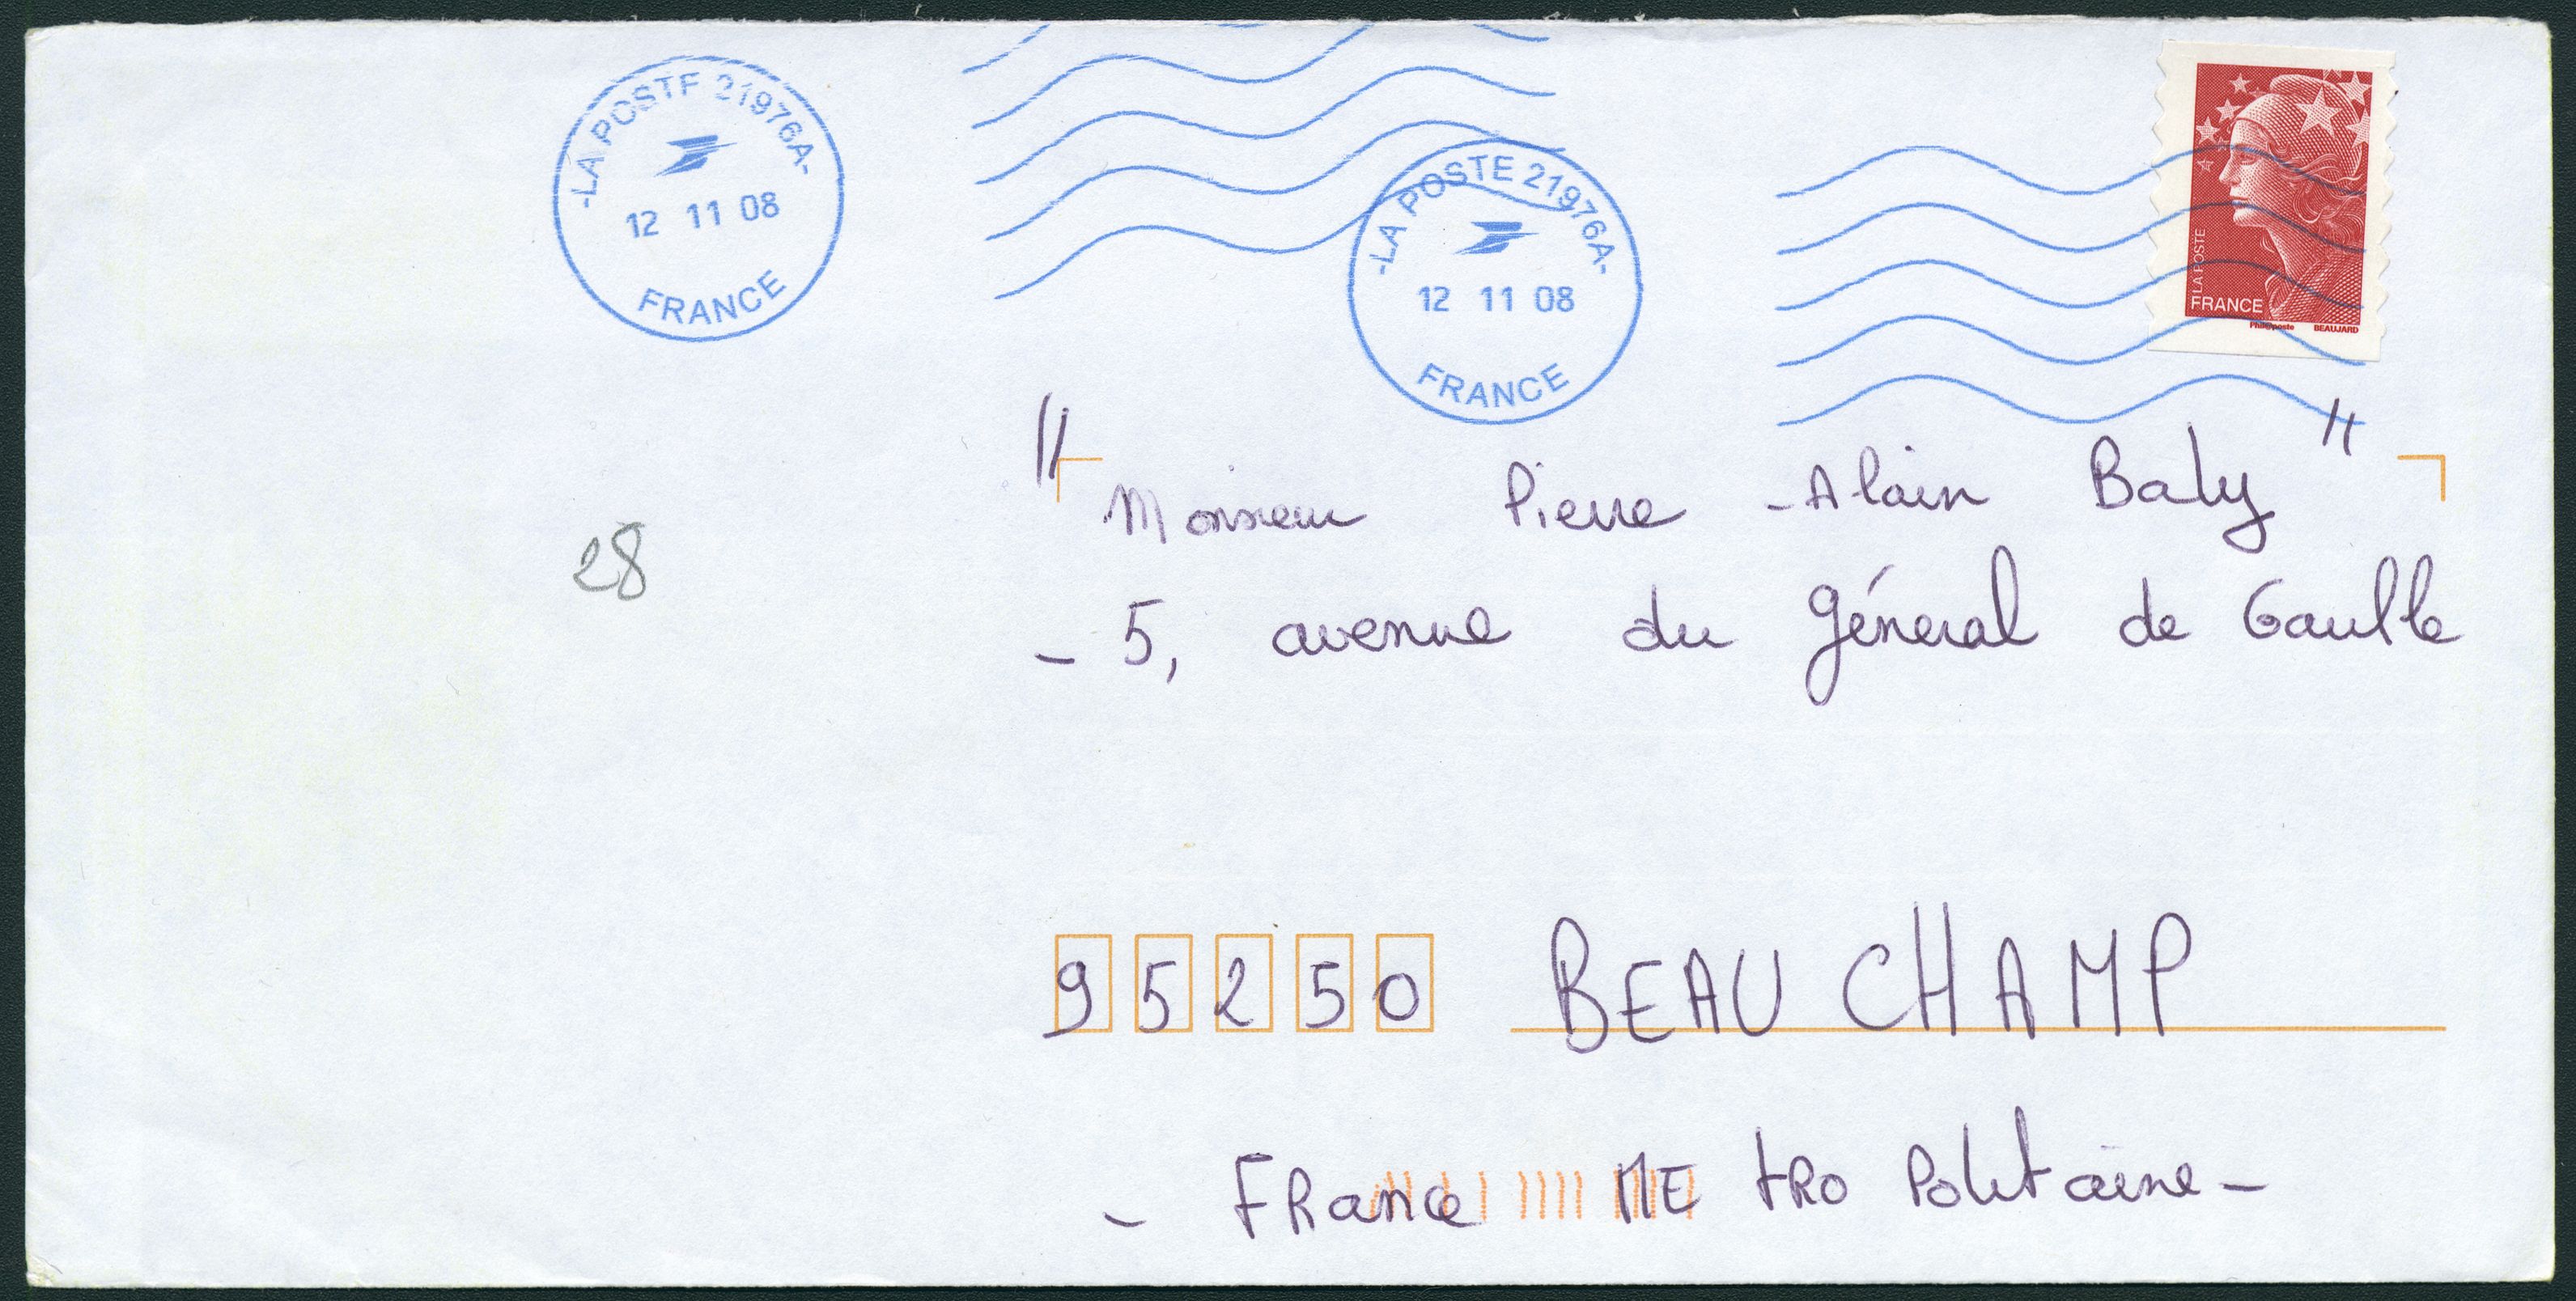 -LA POSTE 21976A-
12 11 08
FRANCE
-LA POSTE 21976A-
12 11 08
FRANCE
LA POSTE
FRANCE
Phil@poste BEAUJARD
" Monsieur Pierre - Alain Baly "
- 5, avenue du Général de Gaulle
28
95250 BEAU CHAMP
- FRance ME tRo Politaine -